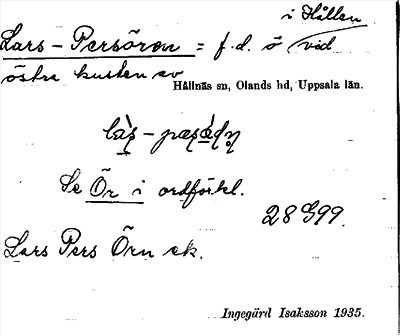 i Hållen
Lars-Persören = f.d. ö vid
östra kusten av
Hållnäs sn, Olands hd, Uppsala län.
Se Ör i ordförkl.
28 G99.
Lars Pers Örn ek.
Ingegärd Isaksson 1935.